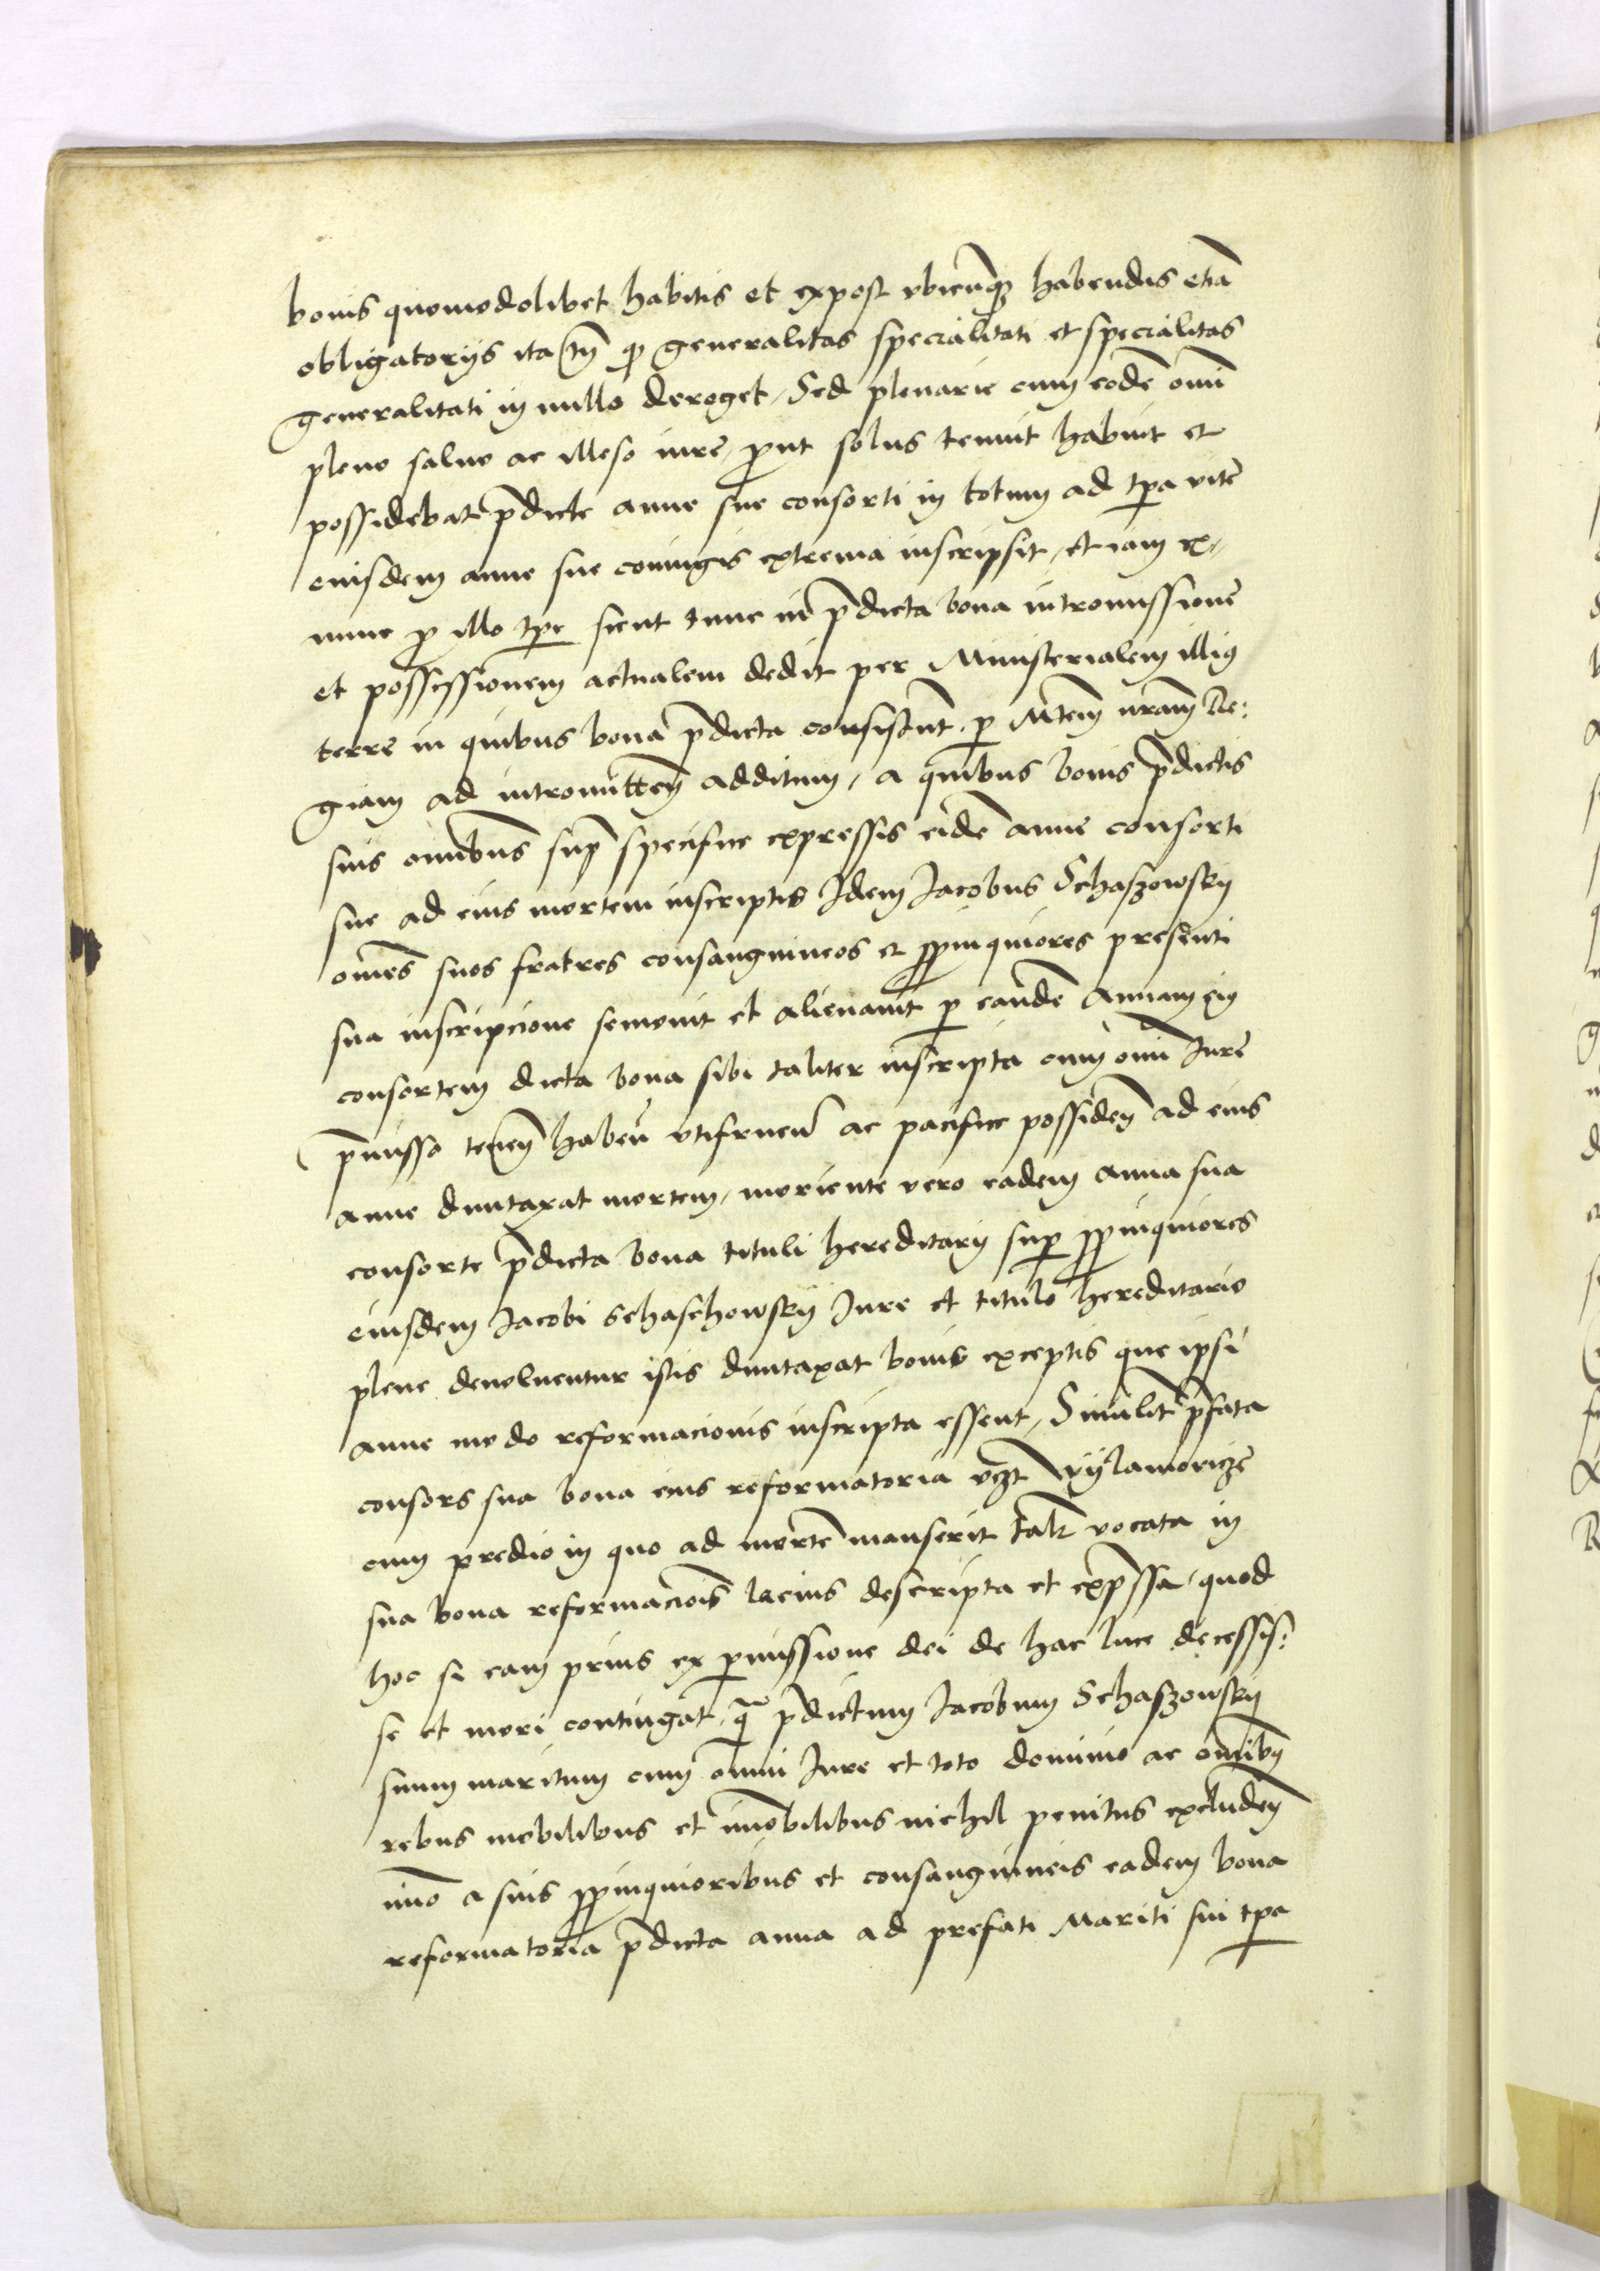 bonis quomodolibet habitis et expost vbicu̅q₃ habendis etia̅
obligatorijs ita tn̅ q generalitas specialitati et specialitas
generalitati in nullo deroget, Sed plenarie cum eode̅ om̅i
pleno saluo ac illeso iure, prout solus tenuit habuit et
possidebat p̅dicte anne sue consorti in totum ad tp̅a vite
eiusdem anne sue coniugis extrema inscripsit, et iam ex
nunc p illo tp̅e sicut tunc in p̅dicta bona intromissione̅
et possessionem actualem dedit per Ministerialem illiꝰ
terre in quibus bona p̅dicta consistu̅t, p Mtem̅ nr̅am Re:
giam ad intromitten̅ additum, a quibus bonis p̅dictis
suis om̅ibus sup̅ specifice expressis eide̅ anne consorti
sue ad eius mortem inscriptis Idem Jacobus Schaszowsky
om̅es suos fratres consanguineos et ppinquiores presenti
sua inscripcione semouit et alienauit p eande̅ Annam eiꝰ
consortem dicta bona sibi taliter inscripta cum om̅i Jure
p̅misso tenen̅ haben̅ vtifruen̅ ac pacifice possiden̅ ad eius
anne duntaxat mortem, moriente vero eadem anna sua
consorte p̅dicta bona tituli hereditarij sup ppinquiores
eiusdem Jacobi Schaschowsky Jure et titulo hereditario
plene deuoluentur istis duntaxat bonis exceptis que ipsi
anne modo reformacionis inscripta essent, Similit̅ p̅fata
consors sua bona eius reformatoria vcz̅t Wylamowicze
cum predio in quo ad morte̅ manserit vocata in
sua bona reformacio̅is lacius descripta et exp̅ssa, quod
hoc si eam prius ex p̅missione dei de hac luce decessis:
se et mori contingat, q̅ p̅dictum Jacobum Schaszowsky
suum maritum cum omni Jure et toto dominio ac om̅ibꝰ
rebus mobilibus et im̅obilibus nichil penitus excluden̅
im̅o a suis ppinquioribus et consanguineis eadem bona
reformatoria p̅dicta anna ad prefati Mariti sui tp̅a